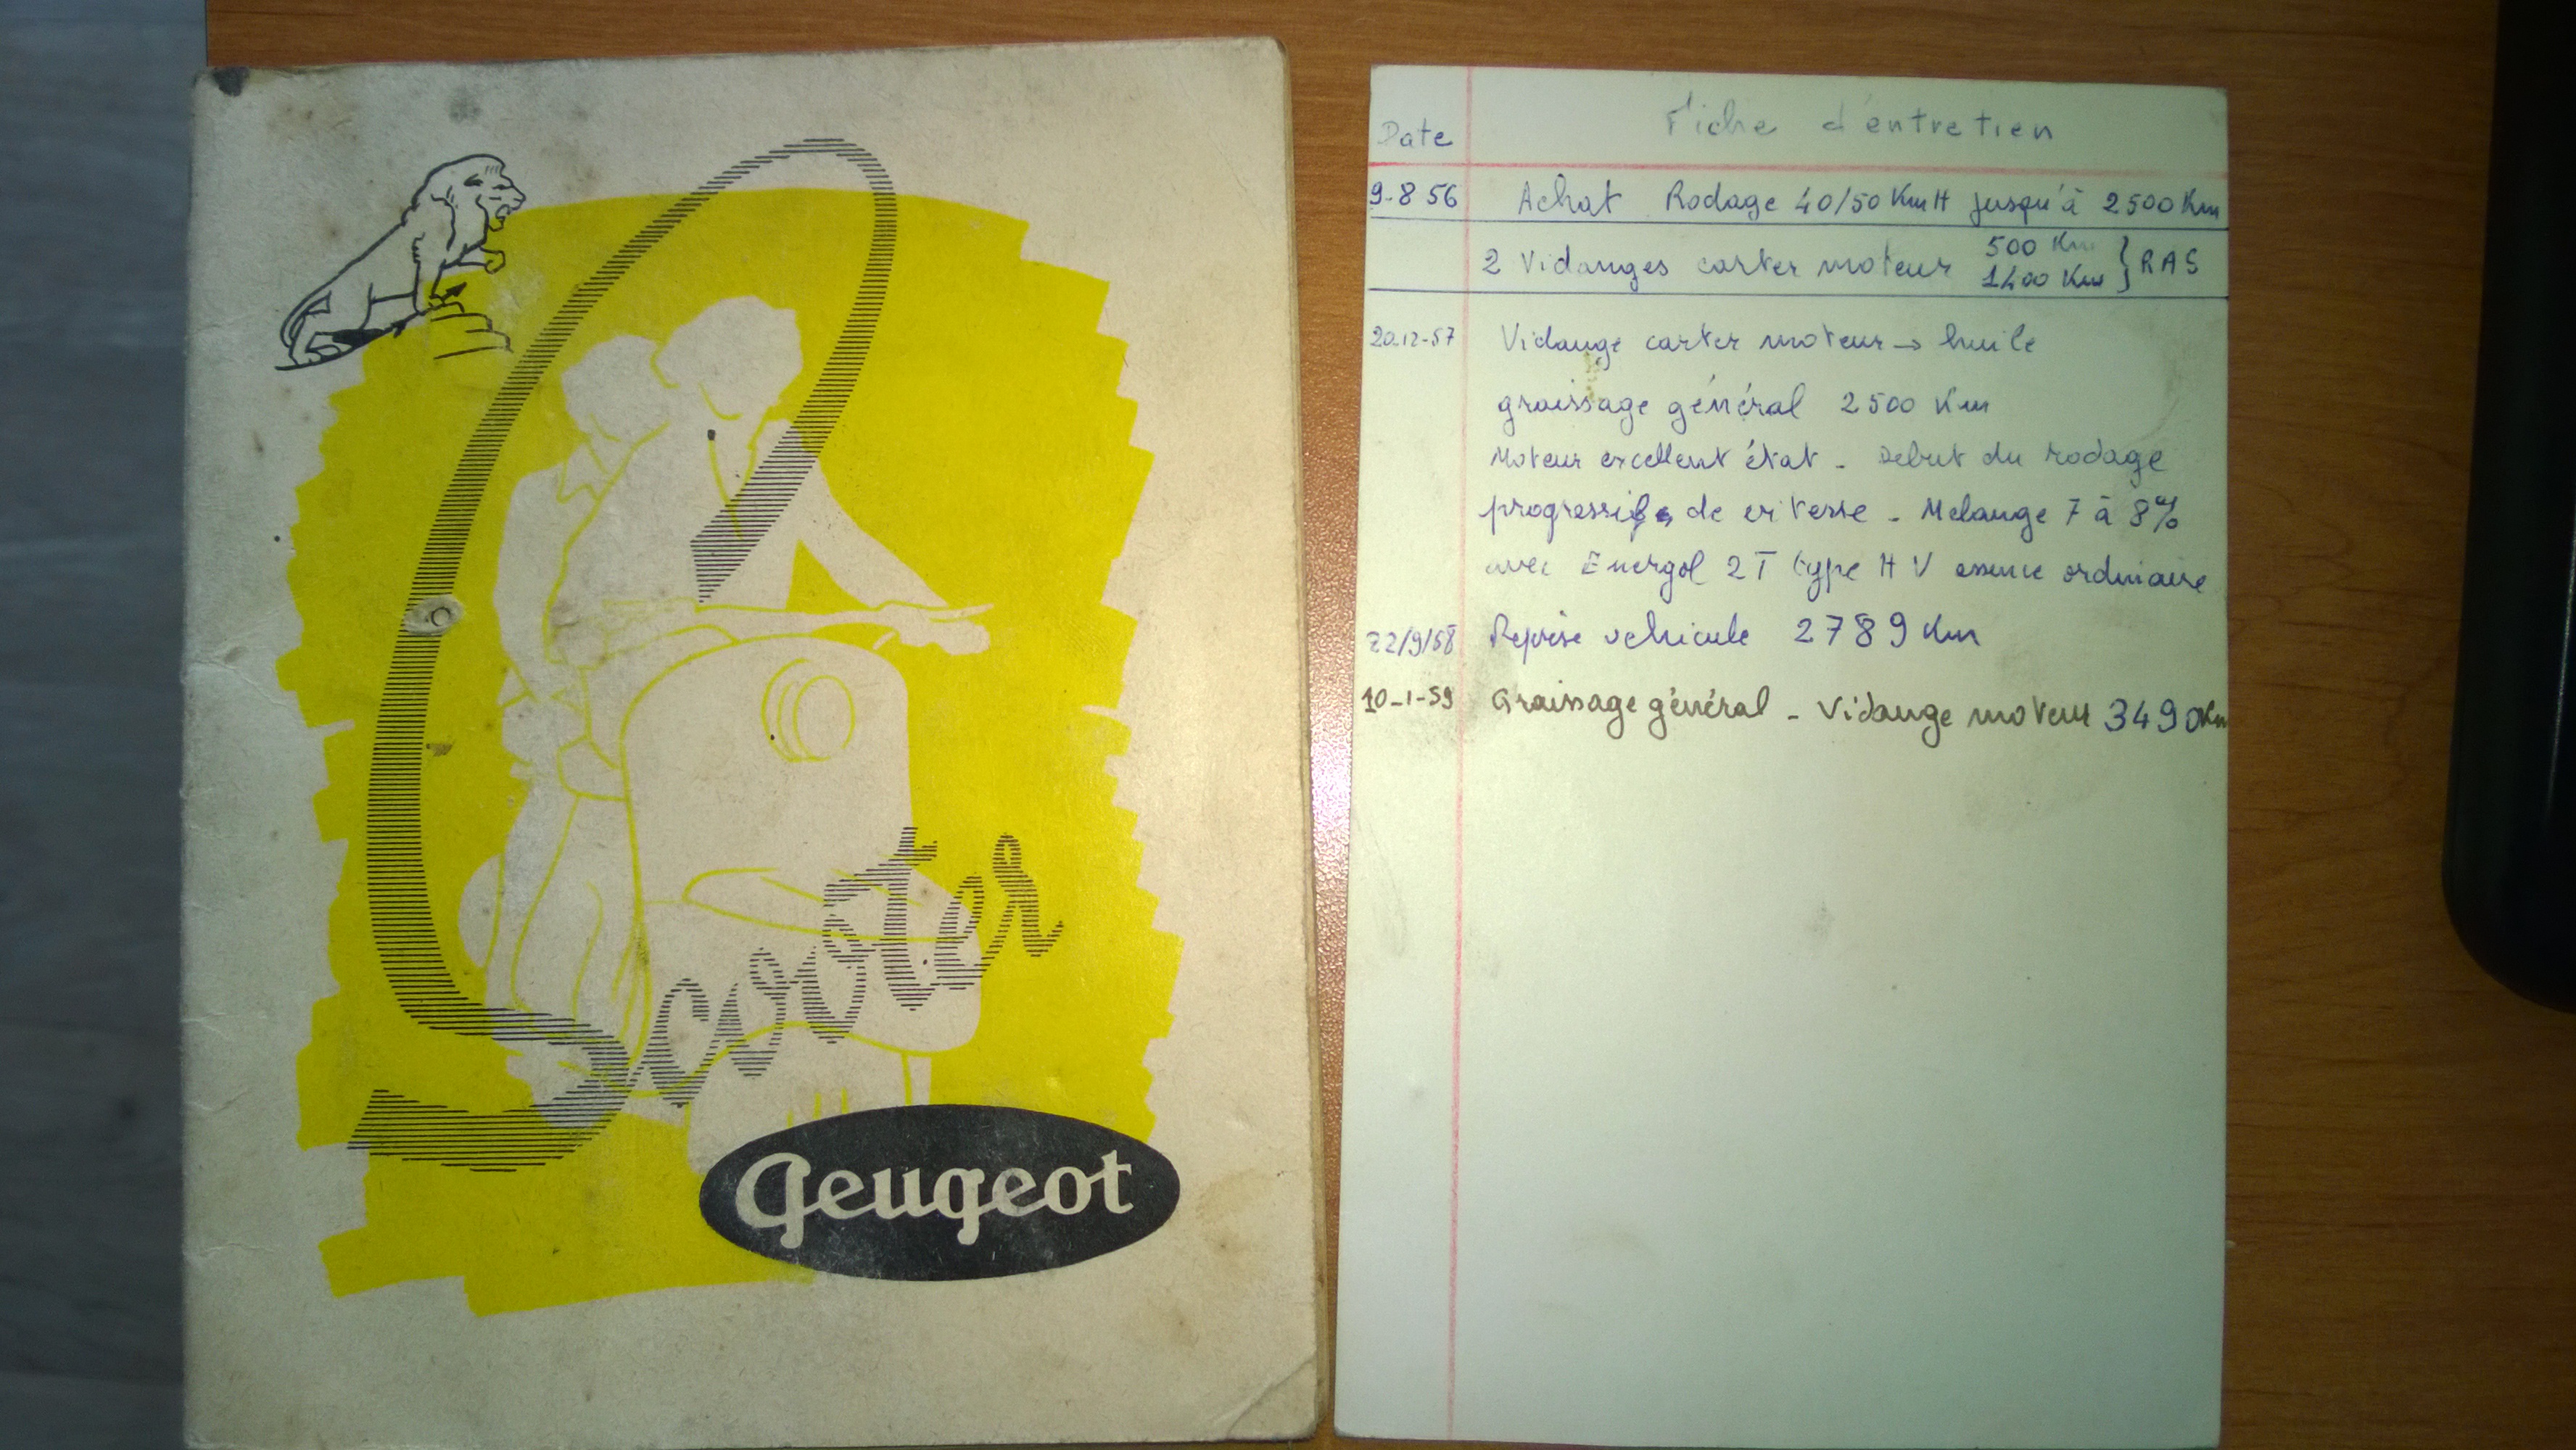 Scooter
Peugeot
Date Fiche d'entretien
9-8 56 Achat Rodage 40/50 KmH jusqu'à 2500 Km
2 Vidanges carter moteur 500 Km } RAS
1400 Km
20-12-57 Vidange carter moteur → huile
graissage général 2500 Km
Moteur excellent état - Debut du rodage
progressif de vitesse - Melange 7 à 8%
avec Energol 2T type HV essence ordinaire
22/9/58 Reprise vehicule 2789 Km
10-1-59 Graissage général - Vidange moteur 3490Km